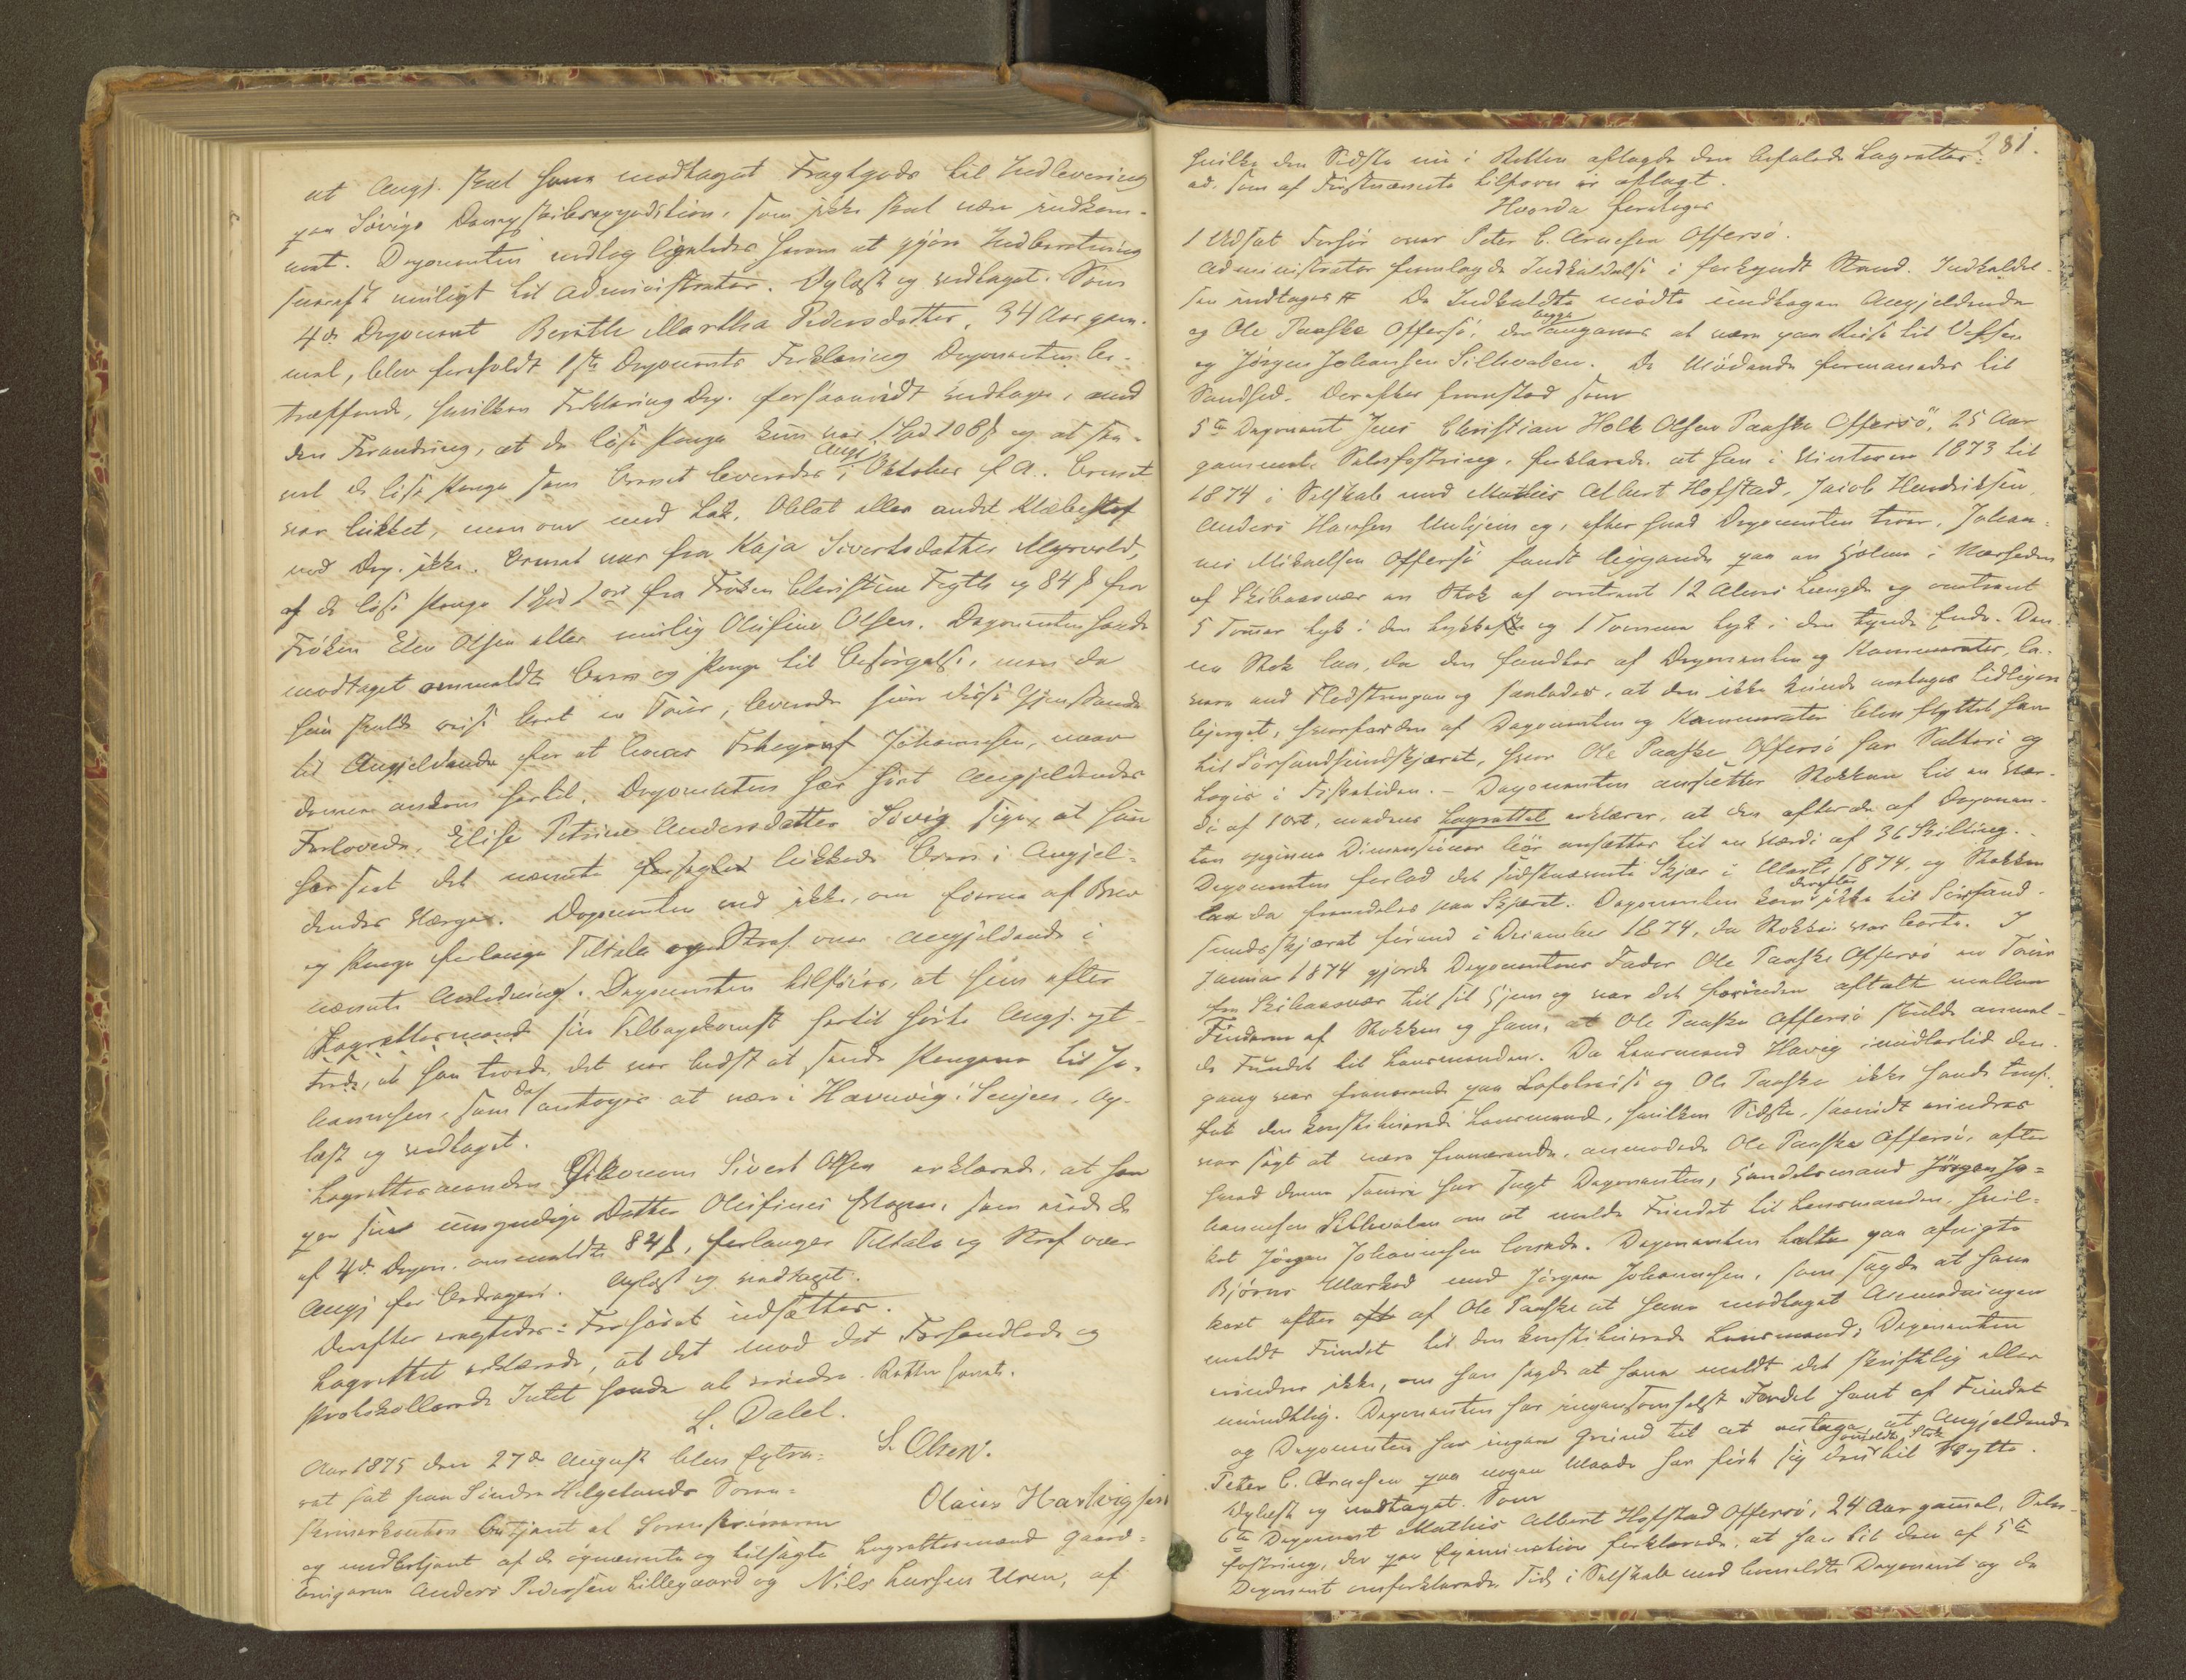 at Angj. skal have modtaget Fragtgods til Indlevering
paa Søvigs Dampskibsexpedition, som ikke skal være indkom-
met. Deponentin vedtog ligeledes herom at gjøre Indberetning
snarest muligt til Administrator. Oplæst og vedtaget. Som
4de Deponent Berith Martha Pedersdatter, 34 Aar gam-
mel, blev foreholdt 1ste Deponents Forklaring Deponenten be-
træffende, hvilken Forklaring Dep. forsaavidt vedtager, med
den Forandring, at de løse Penge kun var 1 Spd 108 ß og at saa-
vel de løse Penge som Brevet leveredes Angj. i Oktober f. A. Brevet
var lukket, men om med Lak, Oblat eller andet Klæbestof
ved Dep. ikke. Brevet var fra Kaja Sivertsdatter Myrvold,
af de løse Penge 1 Spd 1 ort fra Frøken Christine Fygth og 84 ß fra
Frøken Elen Olsen eller  Olufine Olsen. Deponenten havde
modtaget ommeldte Brev og Penge til Besørgelse, men da
hun skulde reise bort en Tour, leverede hun disse Gjenstande
til Angjeldende for at leveres Telegraf Johannesen, naar
denne ankom hertil. Deponenten har hørt Angjeldendes
Forlovede, Elise Petrine Andersdatter Søvig sige, at hun
har seet det nævnte forseglet lukkede Brev i Angjel-
dendes Værge. Deponenten ved ikke, om Eierne af Brev
og Penge forlange Tiltale og Straf over Angjeldende i
nævnte Anledning. Deponenten tilføier, at hun efter
Lagrettesmænd sin Tilbagekomst hertil hørte Angj. yt-
trede, at han troede, det var bedst at sende Pengene til Jo-
hannesen, som da antages at være i Havnvig i Senjen. Op-
læst og vedtaget.
Lagrettesmanden Sivert Olsen erklærede, at han
paa sin umyndige Datter Olufines Vegne, som eiede de
af 4de Depon. ommeldte 84 ß, forlanger Tiltale og Straf over
Angj for Bedrageri. Oplæst og vedtaget.
Derefter vragtedes: Forhøret udsættes.
Lagrettet erklærede, at det mod det Forhandlede og
Protokollerede Intet havde at erindre. Retten hævet.
L. Dalel.
S. Olsen.
Olaius Hartvigsen
Aar 1875 den 27de August blev Extra-
ret sat paa Søndre Helgelands Soren-
skriverkontor betjent af Sorenskriveren
og medbetjent af de opnævnte og tilsagte Lagrettesmænd Gaard-
brugerne Anders Pedersen Lillegaard og Nils Larsen Uren, af
281.
hvilke den Sidste nu i Retten aflagde den befalede Lagrettes-
ed, som af Førstnævnte tilforn er aflagt.
Hvorda foretoges
1 Udsat Forhør over Peter C. Arnesen Offersø.
Administrator fremlagde Indkaldelse i forkyndt Stand. Indkaldel-
sen indtages # De Indkaldte mødte undtagen Angjeldende
og Ole Paaske Offersø, der begge angaves at være paa Reise til Vefsen
og Jørgen Johansen Sillevalen. De Mødende formanedes til
Sandhed. Derefter fremstod som
5te Deponent Jens Christian Holk Olsen Paaske Offersø, 25 Aar
gammel, Selvfostring, forklarede, at han i Vinteren 1873 til
1874 i Selskab med Mathis Albert Hofstad, Jacob Hendriksen,
Anders Hansen Unhjem og, efter hvad Deponenten troer, Johan-
nes Mikaelsen Offersø fandt liggende paa en Holme i Nærheden
af Skibaasvær en Stok af omtrent 12 Alens Længde og omtrent
5 Tommer tyk i den tykkeste og 1 Tomme tyk i den tynde Ende. Den-
ne Stok laa, da den fandtes af Deponenten og Kammerater, la-
vere end Flodstrengen og saaledes, at den ikke kunde antages tidligere
bjerget, hvorfor den af Deponenten og Kammerater blev flyttet hen
til Sørsandsundskjæret, hvor Ole Paaske Offersø har Salteri og
Logis i Fisketiden. – Deponenten ansætter Stokken til en Vær-
di af 1 Ort, medens Lagrettet erklærer, at den efter de af Deponen-
ten opgivne Dimensioner bør ansættes til en Værdi af 36 Skilling.
Deponenten forlod det sidstnævnte Skjær i Marts 1874, og Stokken
laa da fremdeles paa Skjæret. Deponenten kom derefter ikke til Sørsand-
sundsskjæret førend i December 1874, da Stokken var borte. I
Januar 1874 gjorde Deponentens Fader Ole Paaske Offersø en Tour
fra Skibaasvær til sit Hjem og var det forinden aftalt mellem
Finderne af Stokken og ham, at Ole Paaske Offersø skulde anmel-
de Fundet til Lensmanden. Da Lensmand Havig imidlertid den-
gang var fraværende paa Lofotreise og Ole Paaske ikke havde truf-
fet den konstituerede Lensmand, hvilken Sidste, saavidt erindres
var sagt at være fraværende, anmodede Ole Paaske Offersø, efter
hvad denne senere har sagt Deponenten, Handelsmand Jørgen Jo-
hannesen Sillevalen om at melde Fundet til Lensmanden, hvil-
ket Jørgen Johannesen lovede. Deponenten talte paa afvigte
Bjørns Marked med Jørgen Johannesen, som sagde at have
kort efter  af Ole Paaske at have modtaget Anmodningen
meldt Fundet til den konstituerede Lensmand; Deponenten
mindes ikke, om han sagde at have meldt det skriftlig eller
mundtlig. Deponenten har ingensomhelst Fordel havt af Fundet
og Deponenten har ingen Grund til at antage, at Angjeldende
Peter C. Arnesen paa nogen Maade har gjort sig den omhandlede Stok til Nytte.
Oplæst og vedtaget. Som
6te Deponent Mathis Albert Hofstad Offersø, 24 Aar gammel, Selv-
fostring, der paa Examination forklarede, at han til den af 5te
Deponent omforklarede Tid, i Selskab med bemeldte Deponent og de